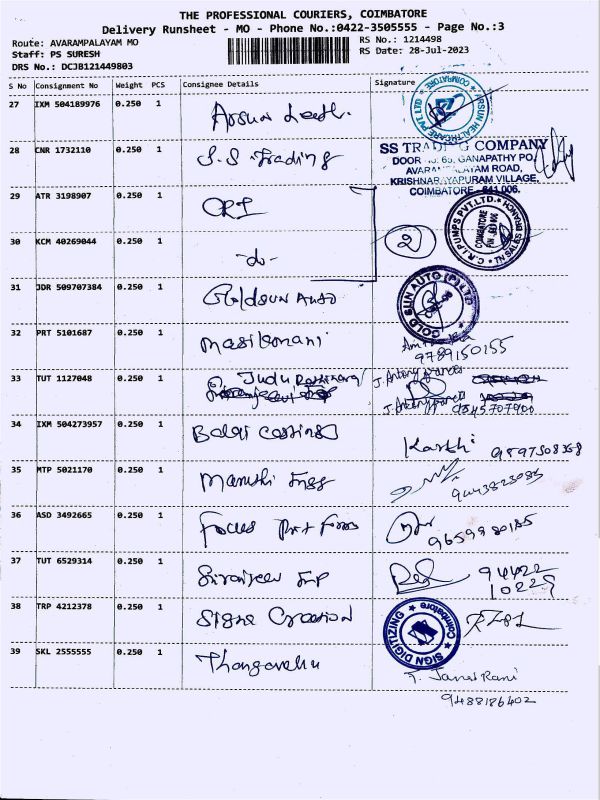 THE PROFESSIONAL COURIERS, COIMBATORE
Delivery Runsheet - MO - Phone No.:0422-3505555 - Page No.:3
Route: AVARAMPALAYAM MO
RS No.: 1214498
Staff: PS SURESH
RS Date: 28-Jul-2023
DRS No.: DCJB121449803
S No Consignment No Weight PCS Consignee Details Signature
27 IXM 504189976 0.250 1
ARSUN HEALTHCARE PVT LTD COIMBATORE
28 CNR 1732110 0.250 1 S.S Trading
SS TRADING COMPANY
DOOR 65, GANAPATHY PO,
AVARAMPALAYAM ROAD,
KRISHNARAYAPURAM VILLAGE,
COIMBATORE - 641 006.
29 ATR 3198907 0.250 1 CRI
30 KCM 40269044 0.250 1 -do- 2
C.R.I. PUMPS PVT.LTD. TN SALES BRANCH
COIMBATORE
PIN 641 006
31 JDR 509707384 0.250 1 Goldsun Auto
GOLD SUN AUTO (P) LTD
32 PRT 5101687 0.250 1 Masilamani
9789150155
33 TUT 1127048 0.250 1 Judu
J. Antony
34 IXM 504273957 0.250 1 Balaji Castings Karthi
35 MTP 5021170 0.250 1
36 ASD 3492665 0.250 1 Focus
9659980185
37 TUT 6529314 0.250 1
94422
10229
38 TRP 4212378 0.250 1 Signe Creation
SIGN DIGITIZING Coimbatore
39 SKL 2555555 0.250 1 Thangavelu
T. Janet Rani
9488186402